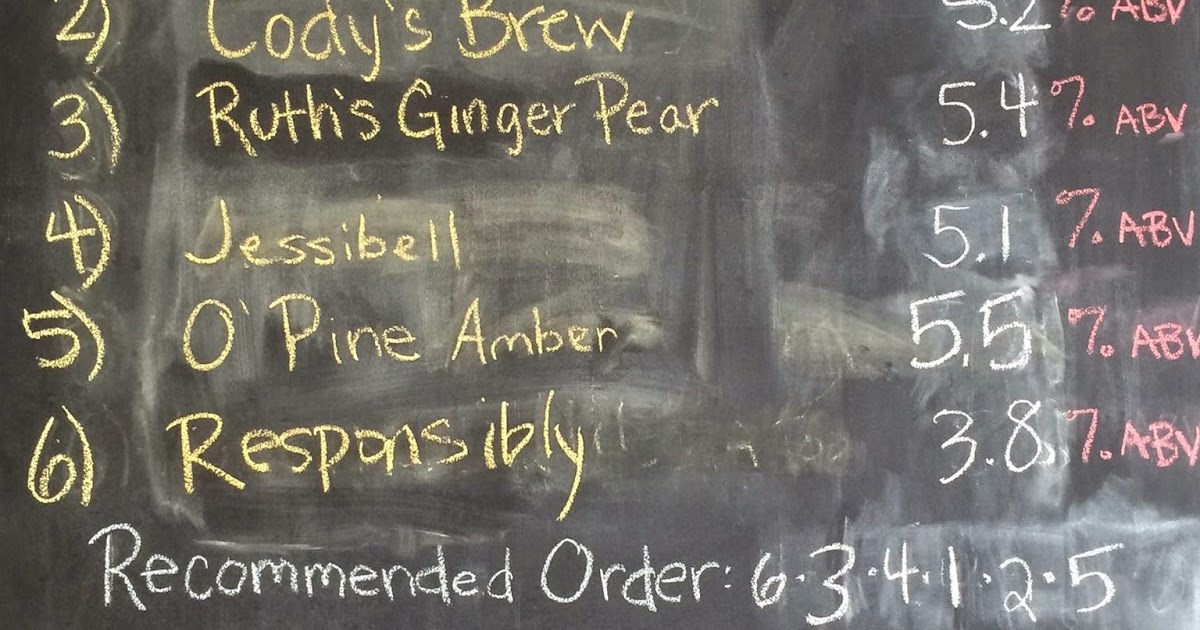 2) Cody's Brew 5.2% ABV
3) Ruth's Ginger Pear 5.4% ABV
4) Jessibell 5.1% ABV
5) O'Pine Amber 5.5% ABV
6) Responsibly 3.8% ABV
Recommended Order: 6·3·4·1·2·5